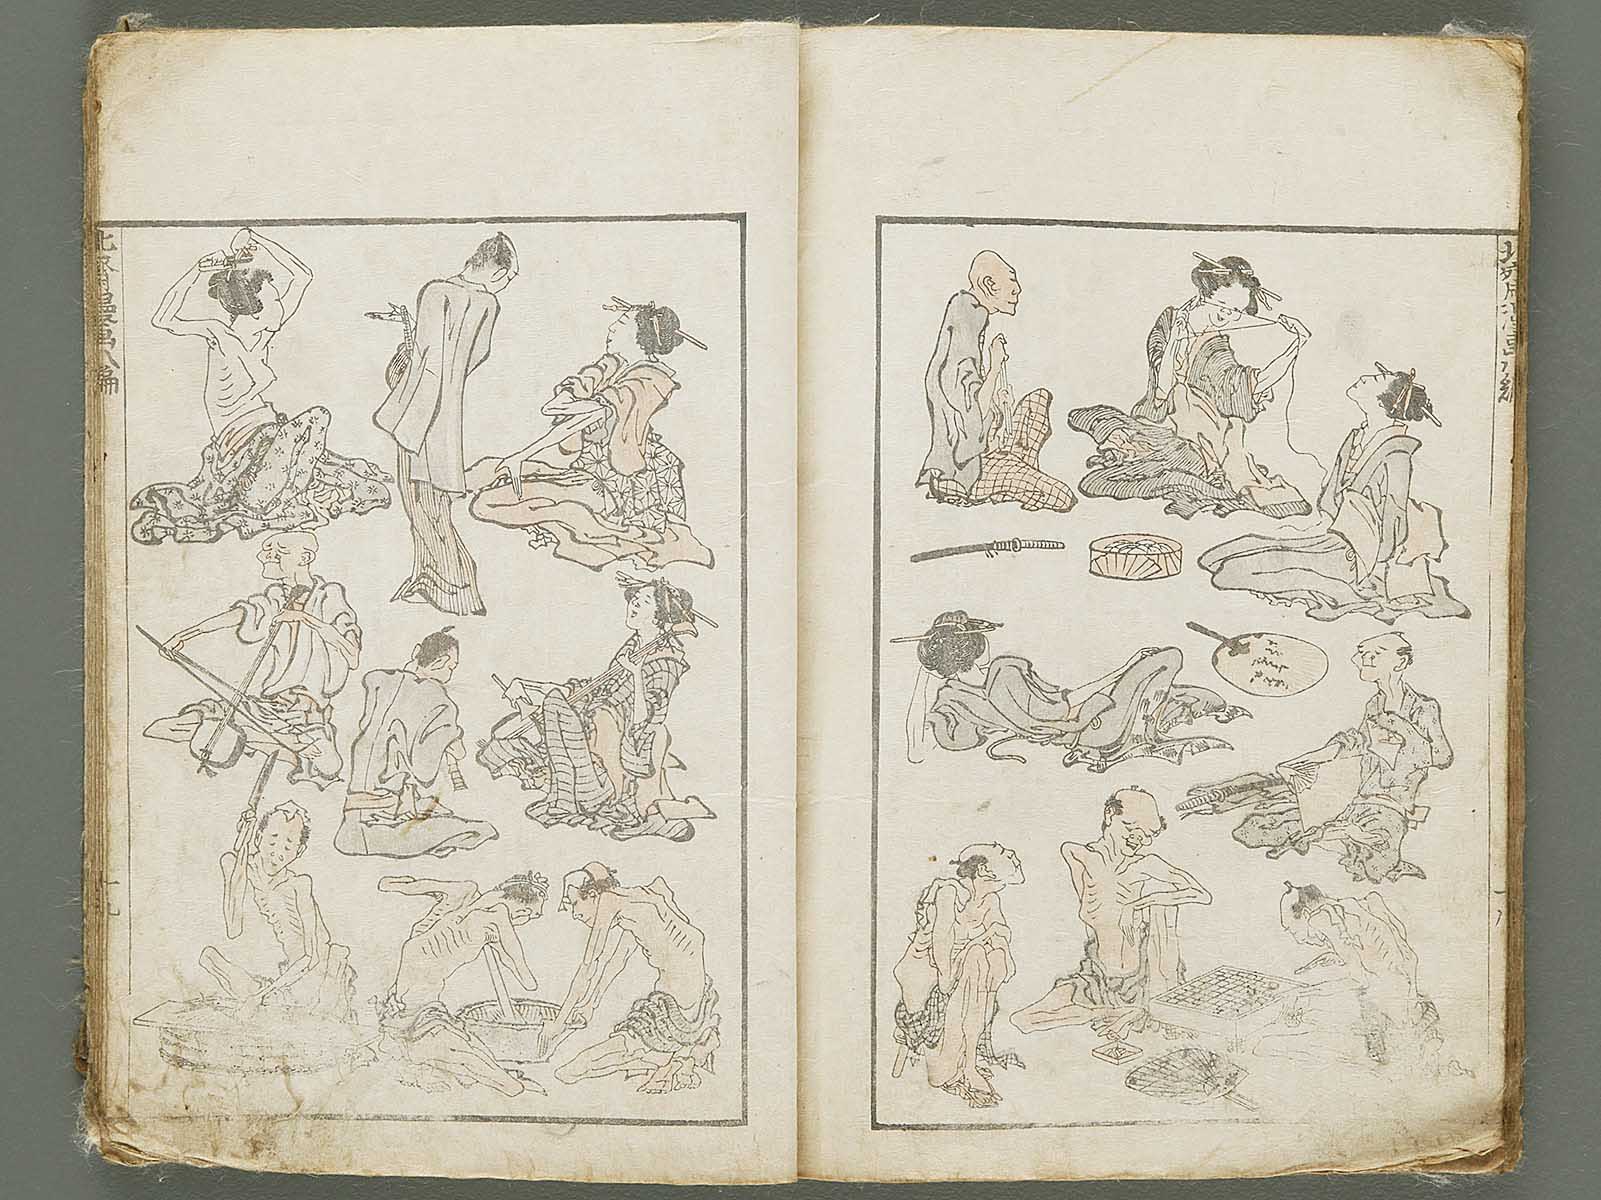 北斎漫画八編
十八
北斎漫画八編
十九